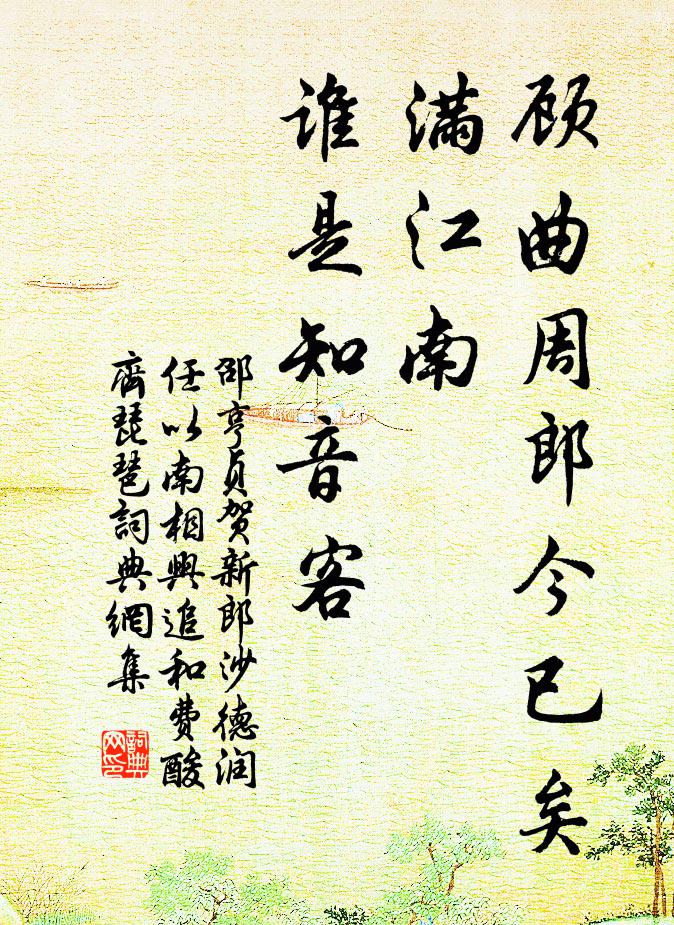 顾曲周郎今已矣
满江南
谁是知音客
邵亨贞贺新郎沙德润
任以南相與追和费酸
齊琵琶詞典網集
詞典
网印